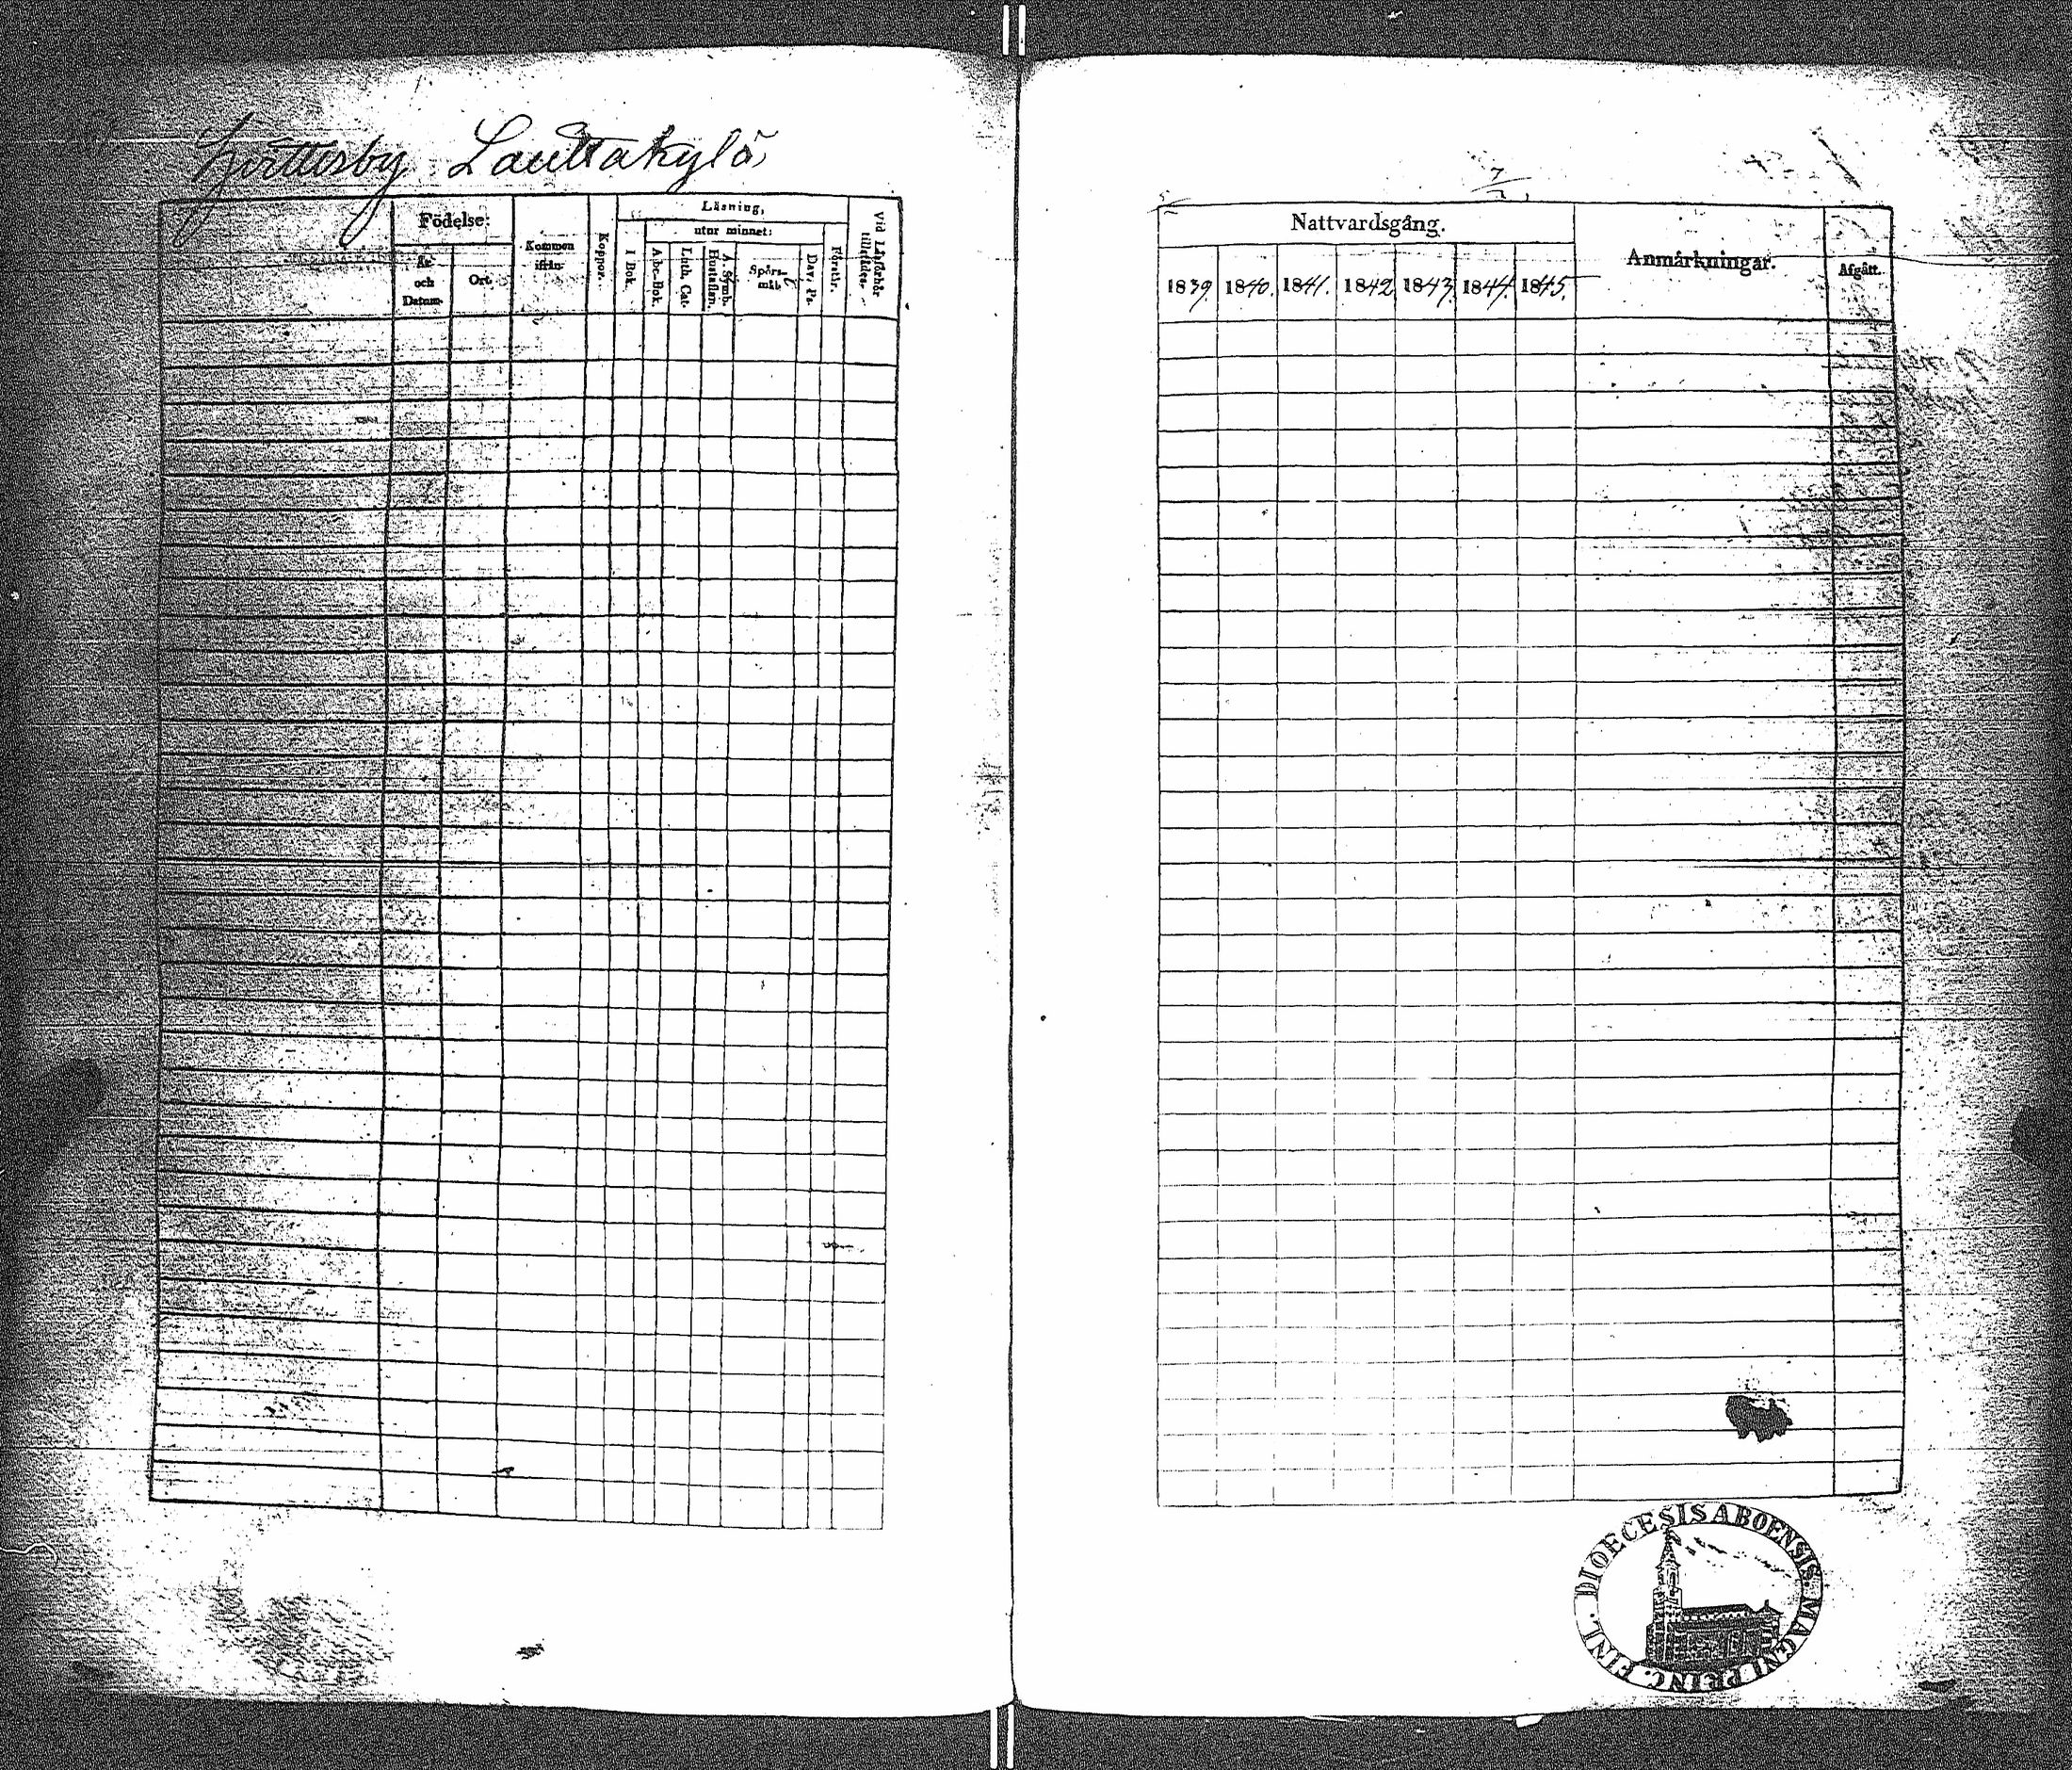 Lauttakylä
Födelse:
År
och
Datum.
Ort.
Kommen
ifrån
Koppor.
Läsning,
utur minnet:
I Bok.
Abc-Bok.
Luth. Cat.
A. Symb.
Hustaflan.
Spörs-
mål.
Dav. Ps.
Förstår.
Vid Läsförhör
7
Nattvardsgång.
1839. 1840. 1841. 1842 1843. 1844. 1845.
Anmärkningar.
Afgått.
DIOECESIS ABOENSIS MAGNI PRINC. FINL.